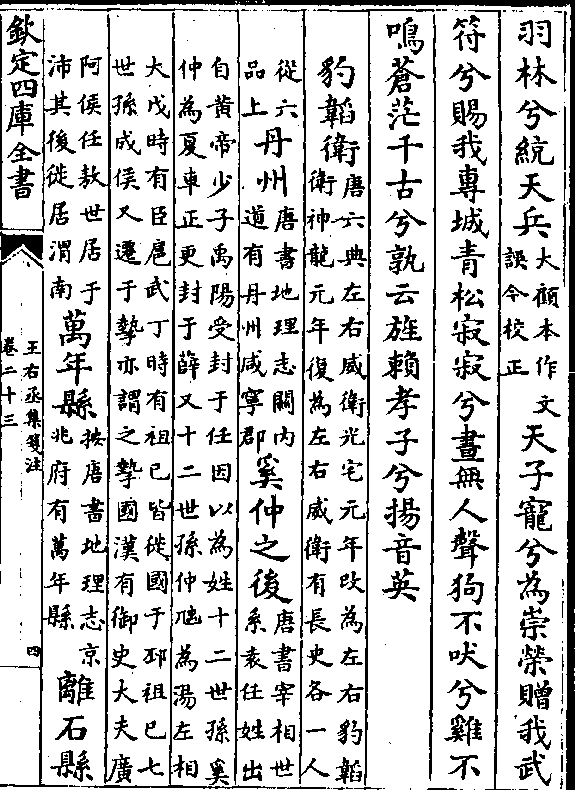 羽林兮統天兵大顧本作文誤今校正天子寵兮為崇榮贈我武
符兮賜我專城青松寂寂兮晝無人聲狗不吠兮雞不
鳴蒼茫千古兮孰云旌賴孝子兮揚音英
豹韜衛唐六典左右威衛光宅元年改為左右豹韜
衛神龍元年復為左右威衛有長史各一人
從六品上丹州唐書地理志關内道有丹州咸寧郡奚仲之後唐書宰相世系表任姓出
自黄帝少子禹陽受封于任因以為姓十二世孫奚
仲為夏車正更封于薛又十二世孫仲虺為湯左相
大戊時有臣扈武丁時有祖已皆徙國于邳祖已七
世孫成侯又遷于摯亦謂之摯國漢有御史大夫廣
阿侯任敖世居于沛其後徙居渭南萬年縣按唐書地理志京兆府有萬年縣離石縣
欽定四庫全書
王右丞集箋注
卷二十三
四